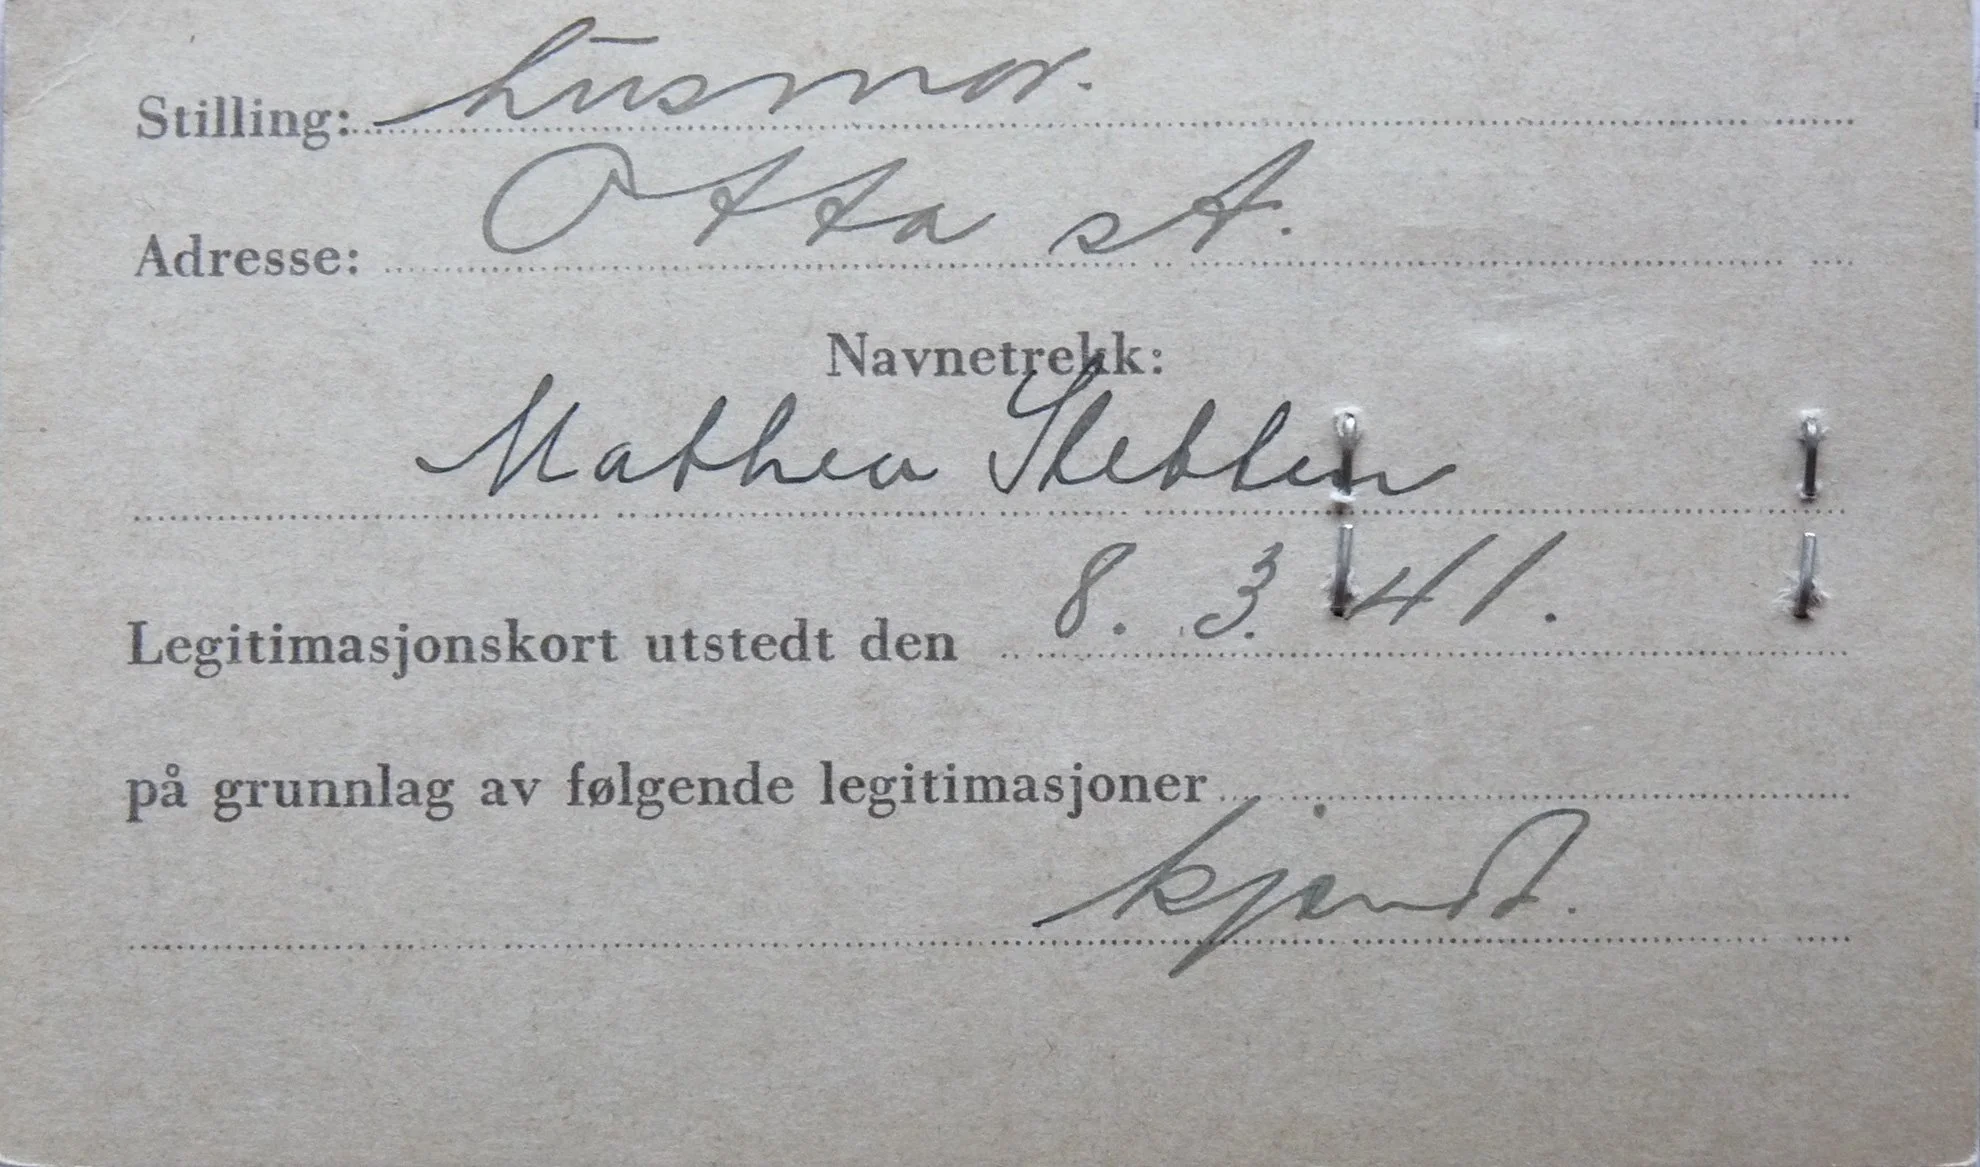 Stilling: husmor.
Adresse: Otta st.
Navnetrekk:
Mathea Sletten
Legitimasjonskort utstedt den 8. 3. 41.
på grunnlag av følgende legitimasjoner
kjendt.